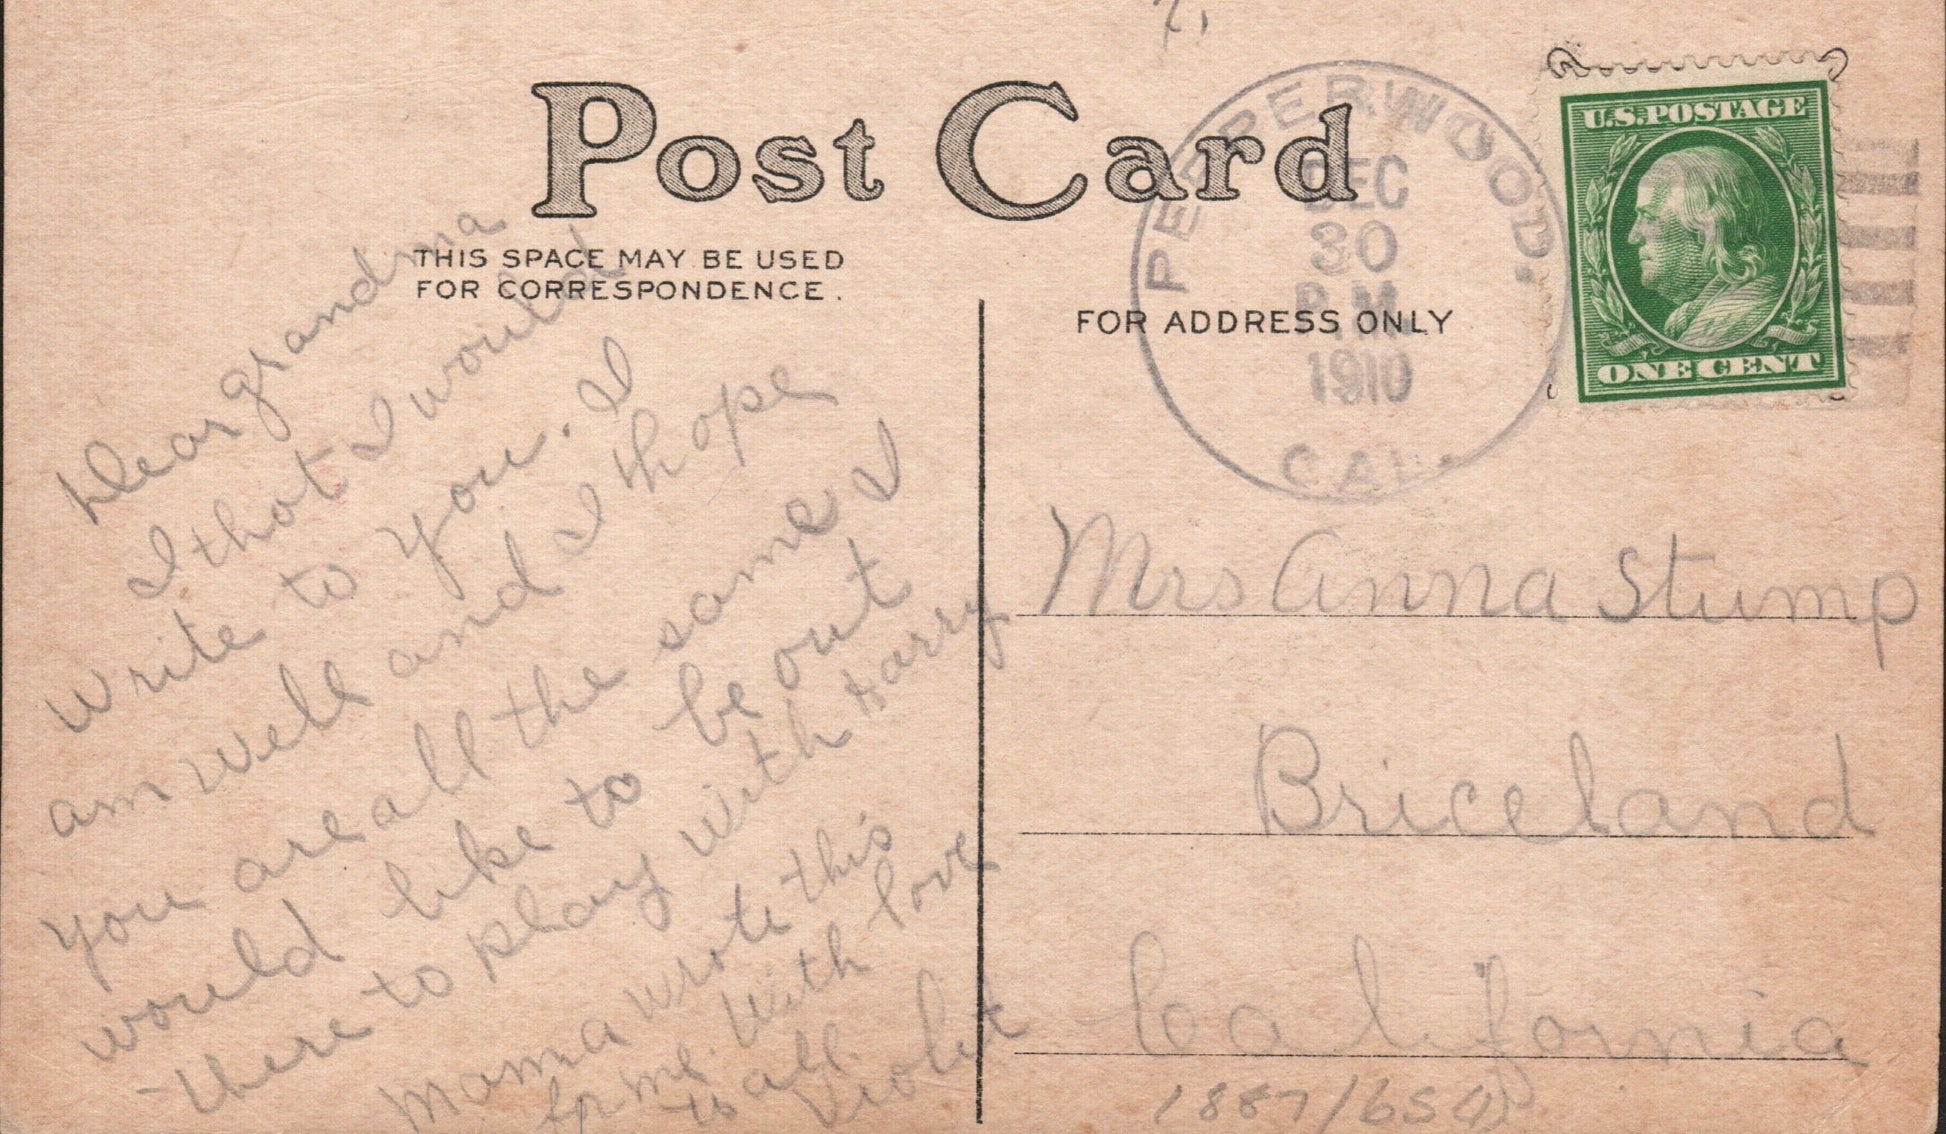 Post Card
THIS SPACE MAY BE USED
FOR CORRESPONDENCE.
FOR ADDRESS ONLY
PEPPERWOOD.
DEC
30
P.M.
1910
CAL.
U.S.POSTAGE
ONE CENT
Dear grandma
I that I would
write to you. I
am well and I hope
you are all the same I
would like to be out
there to play with Harry
Mama wrote this
for me. With love
to all.
Violet
Mrs Anna Stump
Briceland
California